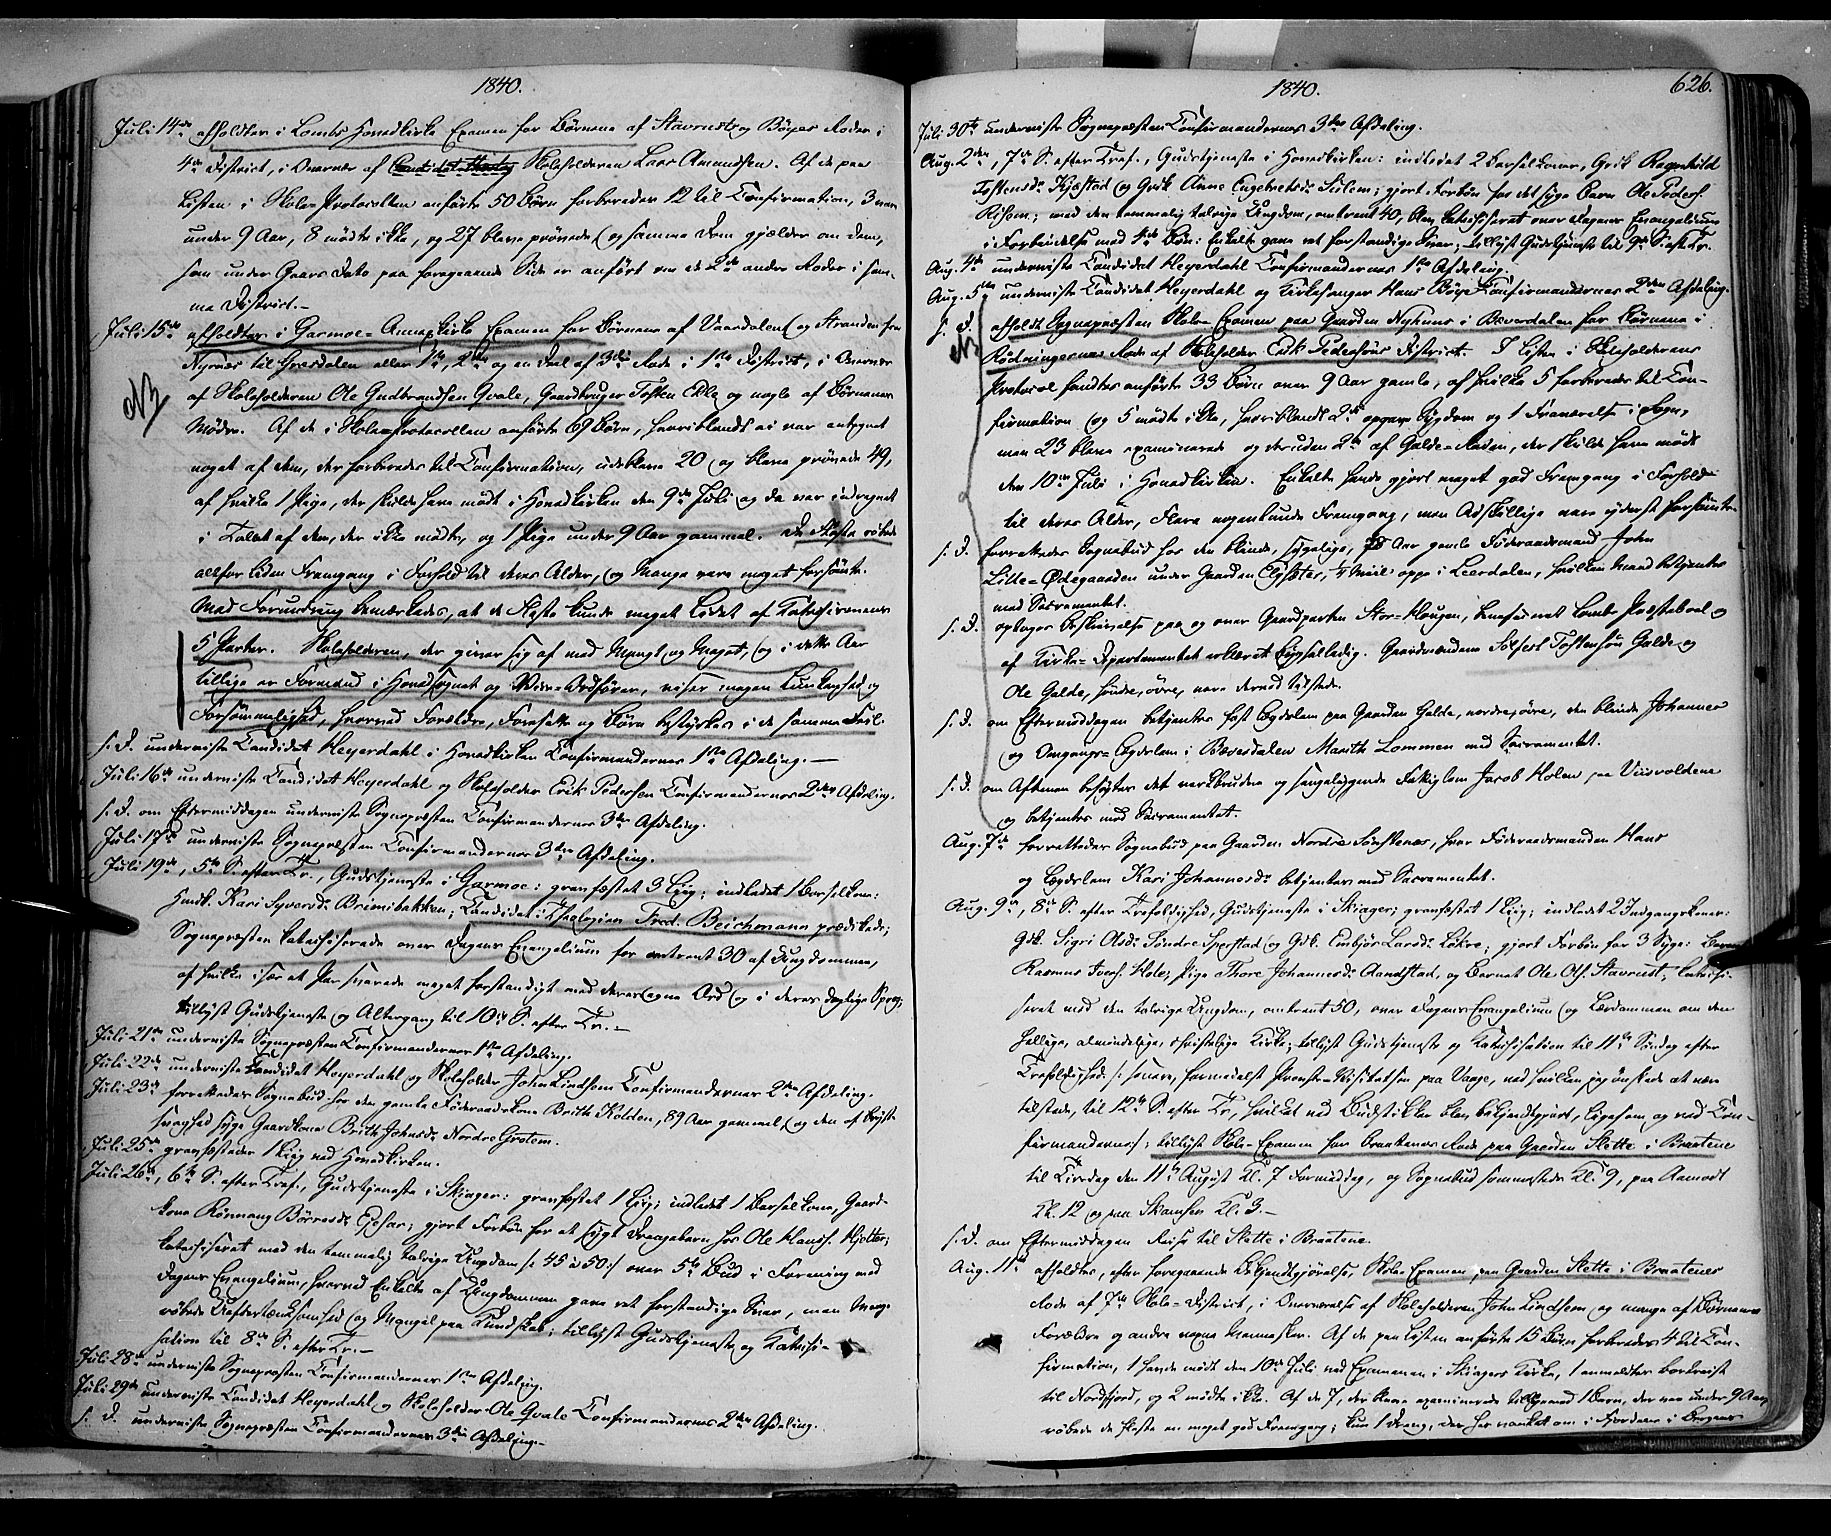 1840.
Juli 14de afholdtes i Lombs Hovedkirke Examen for Börnene af Stavrusts og Böyes Roder i
4de District, i Overvær af Skoleholderen Lars Amundsen. Af de paa
Listen i Skole-Protocollen anförte 50 Börn forberedes 12 til Confirmation, 3 vare
under 9 Aar, 8 mödte ikke, og 27 bleve prövede og samme Dom gjælder om dem,
som under Gaars Dato paa foregaaende Side er anfört om de 2de andre Roder i sam-
me District.-
Juli 15de afholdtes i Garmoe-Annexkirke Examen for Börnene af Vaardalen og Stranden fra
Nyrnæs til Gresdalen eller 1ste, 2den og en Deel af 3die Rode i 1ste District, i Overvær
af Skoleholderen Ole Gudbrandsen Qvale, Gaardbruger Tosten Ekle og nogle af Börnenes
NB
Mödre. Af de i Skole-Protocollen anförte 69 Börn, hvoriblandt ei var antegnet
noget af dem, der forberedes til Confirmation, udebleve 20 og bleve prövede 49,
af hvilke 1 Pige, der skulde have mödt i Hovedkirken den 9de Juli og da var indregnet
i Tallet af dem, der ikke mödte, og 1 Pige under 9 Aar gammel. De fleste röbede
altfor liden Fremgang i Forhold til deres Alder, og Mange vare meget forsömte.
Med Forundring bemærkedes, at de fleste kunde meget Lidet af Catechismens
5 Parter. Skoleholderen, der giver sig af med Mangt og Meget, og i dette Aar
tillige er Formand i Hovedsognet og Vice-Ordförer, viser megen Lunkenhed og
Forsömmelighed, hvorved Forældre, Foresatte og Börn bestyrkes i de samme Feil.
s. D. underviste Candidat Heyerdahl i Hovedkirken Confirmandernes 1ste Afdeling.-
Juli 16de underviste Candidat Heyerdahl og Skoleholder Erik Pedersen Confirmandernes 2den Afdeling.
s. D. om Eftermiddagen underviste Sognepræsten Confirmandernes 3die Afdeling.
Juli 17de underviste Sognepræsten Confirmandernes 3die Afdeling.
Juli 19de, 5te S. efter Tr., Gudstjeneste i Garmoe: gravfæstet 3 Liig; indledet 1 Barselkone:
Huusk. Kari Syversd. Brimibakken; Candidat i Theologien Fred. Beichmann prædikede;
Sognepræsten katechiserede over Dagens Evangelium for omtrent 30 af Ungdommen,
af hvilke især et Par svarede meget forstandigt med deres egne Ord og i deres daglige Sprog;
tillyst Gudstjeneste og Altergang til 10de S. efter Tr.-
Juli 21de underviste Sognepræsten Confirmandernes 1ste Afdeling.
Juli 22de underviste Candidat Heyerdahl og Skoleholder John Lindsöen Confirmandernes 2den Afdeling.
Juli 23de forrettedes Sognebud hos den gamle Föderaadskone Brith Kolden, 89 Aar gammel og den af Bryst-
svaghed syge Gaardkone Brith Johnsd. Nordre Grotem.
Juli 25de gravfæstedes 1 Liig ved Hovedkirken.
Juli 26de, 6te S. efter Tref., Gudstjeneste i Skiager: gravfæstet 1 Liig; indledet 1 Barselkone, Gaard-
kone Rönnaug Börresd.; gjort Forbön for et sygt Drengebarn hos Ole Hanss. Hjelter;
katechiseret med den temmelig talrige Ungdom /: 45 à 50 :/ over 5te Bud i Forening med
Dagens Evangelium, hvorved Enkelte af Ungdommen gave ret forstandige Svar, men Mange
röbede Ueftertænksomhed og Mangel paa Kundskab; tillyst Gudstjeneste og Katechi-
sation til 8de S. efter Tr.-
Juli 28de underviste Sognepræsten Confirmandernes 1ste Afdeling.
Juli 29de underviste Candidat Heyerdahl og Skoleholder Ole Qvale Confirmandernes 2den Afdeling.
s. D. underviste Sognepræsten Confirmandernes 3die Afdeling.-
1840.
626.
Juli 30te underviste Sognepræsten Confirmandernes 3die Afdeling.
Aug. 2den, 7de S. efter Tref., Gudstjeneste i Hovedkirken: indledet 2 Barselkoner, Gdk. Ragnhild
Tostensd. Kjæstad og Gdk. Anne Engebretsd. Sulem; gjort Forbön for det syge Barn Ole Peders.
Risem; med den temmelig talrige Ungdom, omtrent 40, blev katechiseret over Dagens Evangelium
i Forbindelse med 4de Bön: Enkelte gave ret forstandige Svar; tillyst Gudstjeneste til 9de S. eft. Tr.
Aug. 4de underviste Candidat Heyerdahl Confirmandernes 1ste Afdeling.
Aug. 5te underviste Candidat Heyerdahl og Kirkesanger Hans Böye Confirmandernes 2den Afdeling.
s. D. afholdt Sognepræsten Skole-Examen paa Gaarden Nyhuus i Bæverdalen for Börnene i
NB
Rödningernes Rode af Skoleholder Erik Pedersöns District. I Listen i Skoleholderens
Protocol fandtes anförte 33 Börn over 9 Aar gamle, af hvilke 5 forberedes til Con-
firmation og 5 mödte ikke, hvoriblandt 2de opgave Sygdom og 1 Fraværelse i Sogn,
men 23 bleve examinerede og desuden 2de af Galde-Roden, der skulde have mödt
den 10de Juli i Hovedkirken. Enkelte havde gjort meget god Fremgang i Forhold
til deres Alder, Flere nogenlunde Fremgang, men Adskillige vare yderst forsömte.
s. D. forrettedes Sognebud hos den blinde, sygelige, 78 Aar gamle Föderaadsmand John
Lille-Ödegaarden under Gaarden Elvesæter, 1/4 Miil oppe i Leerdalen, hvilken Mand betjentes
med Sacramentet.
s. D. optages Beskrivelse paa og over Gaardparten Stor-Hougen, beneficeret Lombs Præsteboel og
af Kirke-Departementet erklæret bygselledig. Gaardmændene Solfest Tostensön Galde og
Ole Galde, söndre, övre, vare derved tilstede.
s. D. om Eftermiddagen betjentes fast Lægdslem paa Gaarden Galde, nordre, övre, den blinde Johannes
og Omgangs-Lægdslem i Bæverdalen Marith Lommen med Sacramentet.
s. D. om Aftenen besögtes det værkbrudne og sengeliggende Fattiglem Jacob Holen paa Viisvoldene
og betjentes med Sacramentet.
Aug. 7de forrettedes Sognebud paa Gaarden Nordre Sönstenæs, hvor Föderaadsmanden Hans
og Lægdslem Kari Johannesd. betjentes med Sacramentet.
Aug. 9de, 8de S. efter Trefoldighed, Gudstjeneste i Skiager; gravfæstet 1 Liig; indledet 2 Indgangskoner:
Gdk. Sigri Olsd. Söndre Sperstad og Gdk. Embjör Larsd. Lökre; gjort Forbön for 3 Syge: Barnet
Rasmus Ivers. Hole; Pige Thore Johannesd. Aandstad, og Barnet Ole Ols. Stavrust; katechi-
seret med den talrige Ungdom, omtrent 50, over Dagens Evangelium og Lærdommen om den
hellige, almindelige, christelige Kirke; tillyst Gudstjeneste og Katechisation til 11te Söndag efter
Trefoldighed /: senere, formedelst Provste-Visitatsen paa Vaage, ved hvilken jeg önskede at være
tilstede, til 12te S. efter Tr., hvilket ved Budstikker blev bekjendtgjort, ligesom og ved Con-
firmanderne:/; tillyst Skole-Examen for Braatenes Rode paa Gaarden Slette i Braatene
til Tirsdag den 11te August Kl. 7 Formiddag, og Sognebud sammesteds Kl. 9, paa Aamodt
Kl. 12 og paa Skamsar Kl. 3.-
s. D. om Eftermiddagen Reise til Slette i Braatene.
Aug. 11te afholdtes, efter foregaaende Bekjendtgjörelse, Skole-Examen paa Gaarden Slette i Braatenes
Rode af 7de Skole-District, i Overværelse af Skoleholderen John Lindsöen og mange af Börnenes
Forældre og andre voxne Mennesker. Af de paa Listen anförte 15 Börn forberedes 4 til Con-
firmation, 1 havde mödt den 10de Juli ved Examen i Skiagers Kirke, 1 anmeldtes bortreist
til Nordfjord, og 2 mödte ikke. Af de 7, der bleve examinerede tilligemed 1 Barn, der var under 9 Aar,
röbede de fleste en meget god Fremgang; kun 1 Dreng, der har vanket om i Fjordene i Bergens